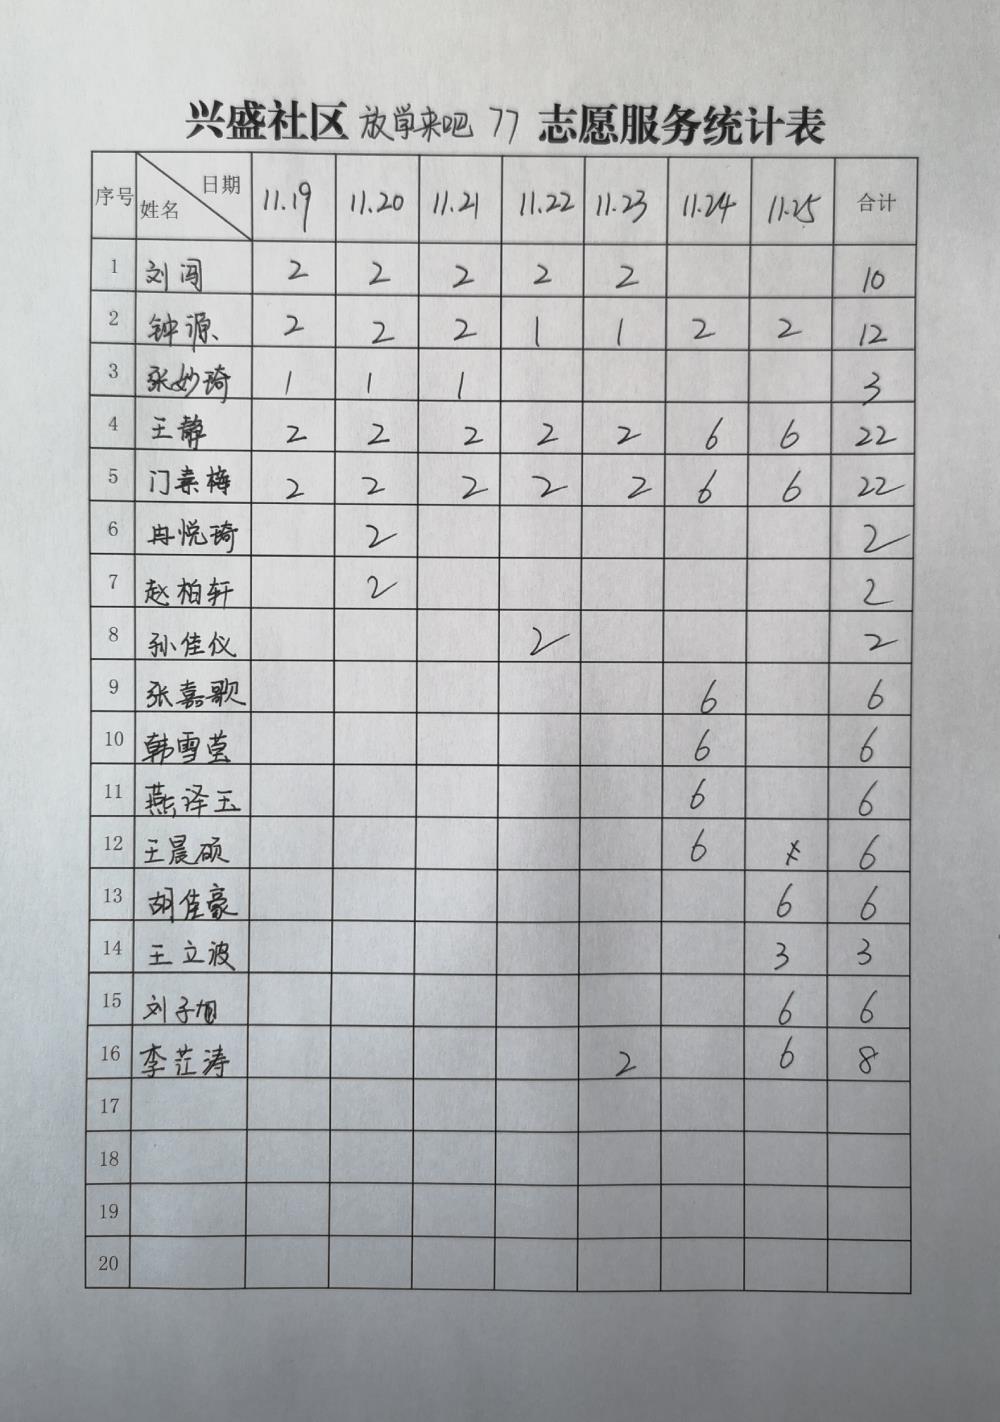 兴盛社区 放学来吧 77 志愿服务统计表
序号 日期 姓名 11.19 11.20 11.21 11.22 11.23 11.24 11.25 合计
1 刘闯 2 2 2 2 2 10
2 钟源 2 2 2 1 1 2 2 12
3 张妙琦 1 1 1 3
4 王静 2 2 2 2 2 6 6 22
5 门素梅 2 2 2 2 2 6 6 22
6 冉悦琦 2 2
7 赵柏轩 2 2
8 孙佳仪 2 2
9 张嘉歌 6 6
10 韩雪莹 6 6
11 燕泽玉 6 6
12 王晨硕 6 6
13 胡佳豪 6 6
14 王立波 3 3
15 刘子旭 6 6
16 李芷涛 2 6 8
17
18
19
20